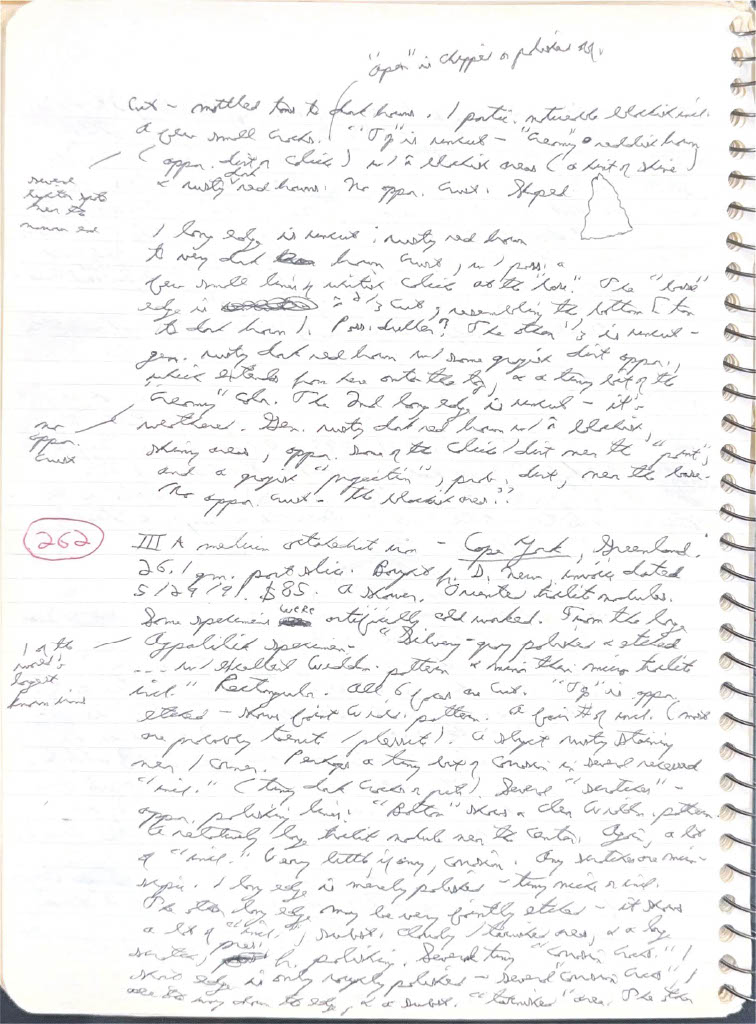 "open" is chipped or polished off.
Cut - mottled tans to dark browns. 1 partic. noticeable blackish incl.
a few small cracks. "Top" is uncut - "creamy" reddish brown
(appar. dirt or caliche) w/ blackish areas (a hint of shine)
& rusty dark red browns. No appar. crust. Shaped
several lighter spots near the narrow end
1 long edge is uncut; rusty red brown
to very dark brown crust, w/ poss. a
few small lines of whitish caliche at the "base". The "base"
edge is 2/3 cut, resembling the bottom [tan
to dark brown]. Poss. chondrules? The other 1/3 is uncut -
gen. rusty dark red brown w/ some grayish dirt appar.,
which extends from here onto the top, & a tiny bit of the
"creamy" color. The 2nd long edge is uncut - it is
weathered. Gen. rusty dark red brown w/ blackish,
no appar. crust
shiny areas, appar. some of the caliche/dirt near the "point",
and a grayish "projection", prob. dirt, near the base.
No appar. crust - the blackish areas??
262
III A medium octahedrite iron - Cape York, Greenland.
26.1 gm. part slice. Bought fr. D. New, invoice dated
5/29/91. $85. A shower. Oriented troilite nodules.
Some specimens were artificially cold worked. From the large
1 of the world's largest known irons
Agpalilik specimen. "Silvery-gray polished & etched
... w/ excellent Widdm. pattern & more than minor troilite
incl." Rectangular. All 6 faces are cut. "Top" is appar.
etched - shows faint Widd. pattern. A fair # of incl. (most
are probably taenite/plessite). A slight rusty staining
near 1 corner. Perhaps a tiny bit of corrosion in several recessed
"incl." (tiny dark cracks or pits). Several "scratches" -
appar. polishing lines. "Bottom" shows a clear Widdm. pattern
& relatively large troilite nodule near the center. Again, a lot
of "incl." Very little, if any, corrosion. Any scratches are micro-
scopic. 1 long edge is merely polished - tiny nicks or incl.
The other long edge may be very faintly etched - it shows
a lot of "incl.", subst. cloudy/tarnished area, & a long
scratch, pres. fr. polishing. Several tiny "corrosion cracks". 1
short edge is only roughly polished - several corrosion cracks, 1
all the way down the edge, & a subst. "tarnished" area. The other